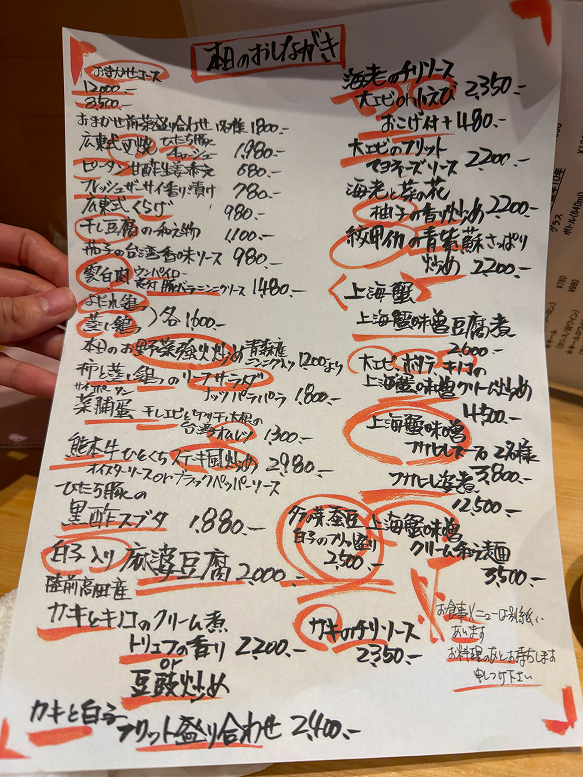 本日のおしながき
おまかせコース
12,000-
3,500-
おまかせ前菜盛り合わせ 1名様 1,800.-
広東式叉焼 ひたち豚
チャーシュー 1,980.-
ピータン甘酢生姜添え 680.-
フレッシュザーサイ香り漬け 780.-
広東式くらげ 980.-
干し豆腐の和え物 1,100.-
茄子の台湾香味ソース 980.-
雲白肉 ウンパイロー
豚バラニンニクソース 1480.-
よだれ鶏
蒸し鶏 〉各1600.-
本日のお野菜強火炒め 青森産
ニンニク入り 1200より
蒸し鶏のリーフサラダ
ナッツパラパラ 1,800.-
菜脯蛋 干しエビと切り干し大根の
台湾オムレツ 1300.-
熊本牛ひとくちステーキ風炒め 2980.-
オイスターソース or ブラックペッパーソース
ひたち豚の
黒酢スブタ 1,880.-
白子入り麻婆豆腐 2000.-
陸前高田産
カキとキノコのクリーム煮
トリュフの香り 2,200.-
or
豆豉炒め
カキと白子
フリット盛り合わせ 2,400.-
海老のチリソース
大エビor小えび 2,350-
おこげ付+480.-
大エビのフリット
マヨネーズソース 2,200-
海老と菜の花
柚子の香り炒め 2,200-
紋甲イカの青紫蘇さっぱり
炒め 2,200-
〈上海蟹〉
上海蟹味噌豆腐煮
2,000-
大エビ ポテト キノコの
上海蟹味噌クリーム炒め
4,500-
上海蟹味噌
フカヒレスープ 2名様
3,800-
フカヒレ姿煮
12,500-
上海蟹味噌
クリーム和え麺
3,500-
白子のフリット盛り
2,500-
カキのチリソース
2,350.-
お食事メニューは別紙に
あります
お料理のあとお持ちします
申しつけ下さい
グラス
ボトル(640ml)
¥780